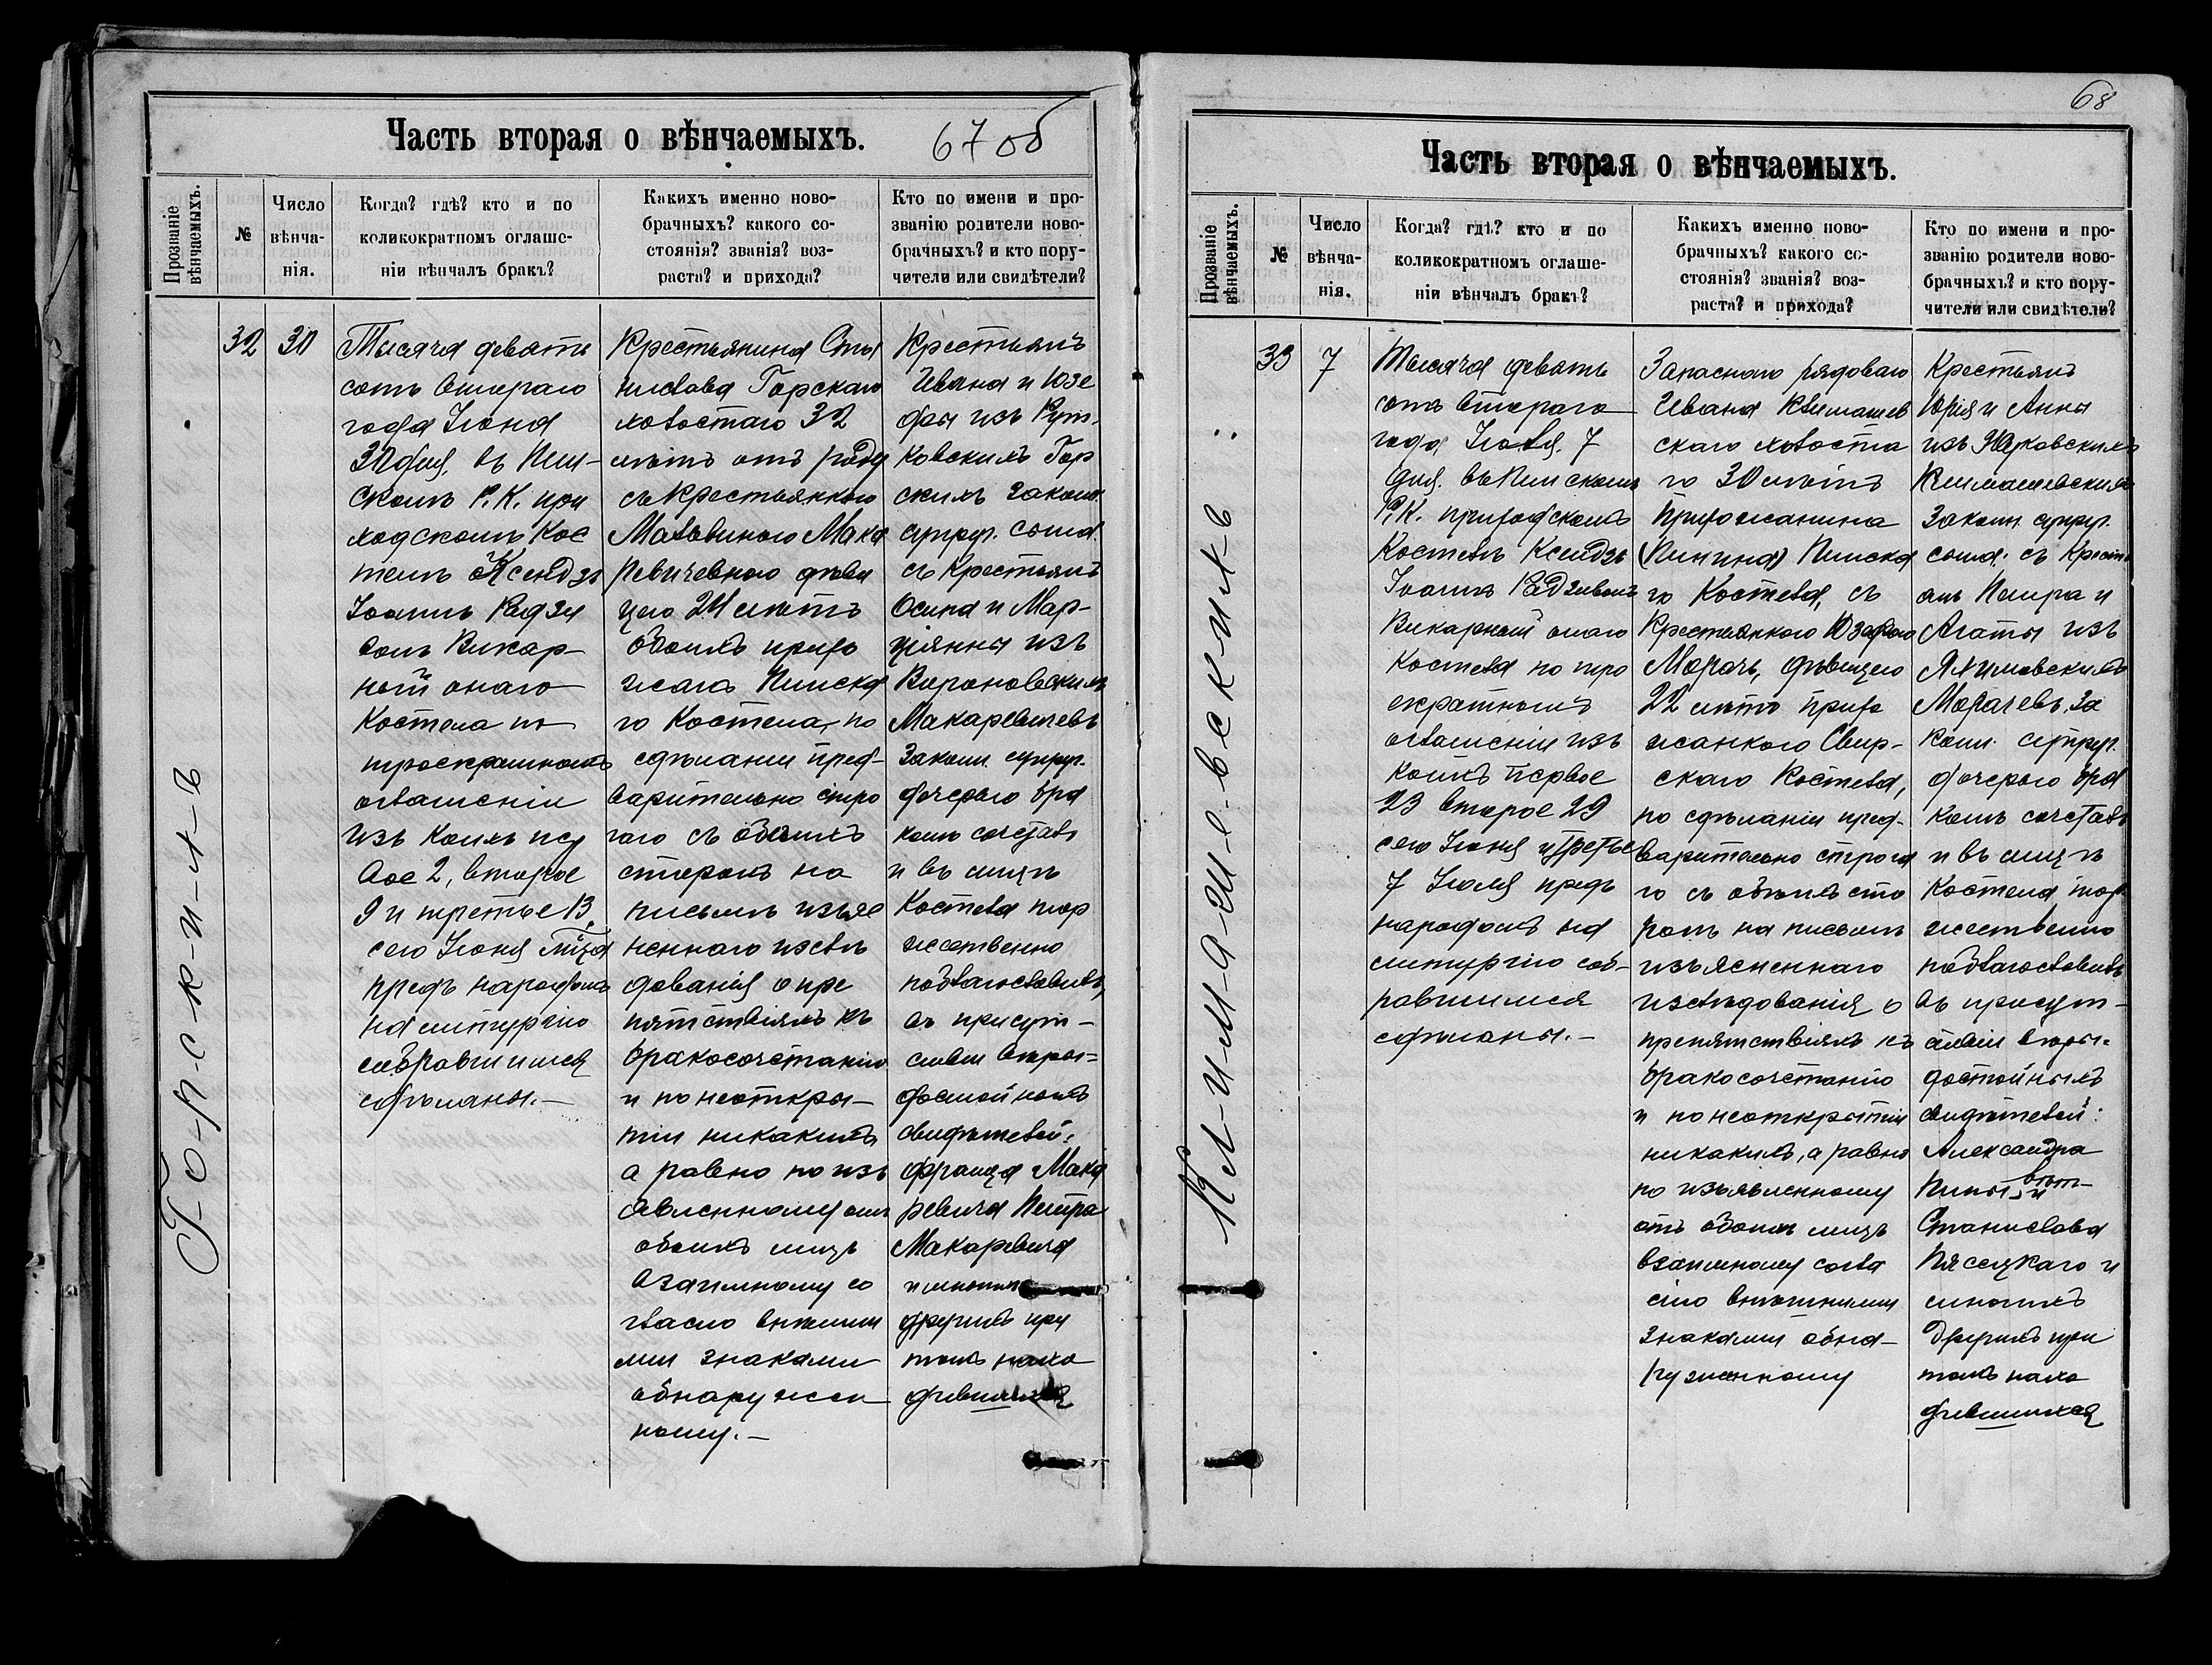 Часть вторая о вѣнчаемыхъ.
67 об
Прозваніе вѣнчаемыхъ.
№
Число вѣнча-нія.
Когда? гдѣ? кто и по
коликократномъ оглаше-
ніи вѣнчалъ бракъ?
Каихъ именно ново-
брачныхъ? какого со-
стоянія? званія? воз-
раста? и прихода?
Кто по имени и про-
званію родители ново-
брачныхъ? и кто пору-
чители или свидѣтели?
Г-о-р-с-к-и-х-ъ
32
30
Тысяча девять
сотъ втораго
года Іюня
30 дня, въ Пин-
скомъ Р.К. при
ходскомъ Кос
телѣ Ксендзъ
Іоаннъ Радзи
вонъ Викар-
ный онаго
Костела по
троекратномъ
оглашеніи
изъ коихъ пер
вое 2, второе
9 и третье 13
сего Іюня мѣца
предъ народомъ
на литургію
собравшимся
сдѣланы.-
Крестьянина Ста
нислава Горскаго
холостаго 32
лѣтъ отъ роду
съ крестьянкою
Мальвиною Мака
ревичевною дѣви
цею 24 лѣтъ
обоихъ прихо
жанъ Пинска
го Костела, по
сдѣланіи пред-
варительно стро
гаго съ обоихъ
сторонъ на
письмѣ изъяс
неннаго изслѣ
дованія о пре
пятствіяхъ къ
бракосочетанію
и по неоткры-
тіи никакихъ
а равно по изъ
явленному отъ
обоихъ лицъ
взаимному со
гласію внѣшни
ми знаками
обнаружен
ному.-
Крестьянъ
Ивана и Юзе
фы изъ Рут-
ковскихъ Гор
скихъ закон.
супруг. сына
съ крестьянъ
Осипа и Мар-
ціянны изъ
Вороновскихъ
Макаревичевъ
закон. супруг.
дочерью бра
комъ сочеталъ
и въ лицѣ
Костела тор
жественно
поблагословилъ,
въ присут-
ствіи вѣры-
достойныхъ
свидѣтелей:
Франца Мака
ревича Петра
Макаревича
и многихъ
другихъ при
томъ нахо
дившихся
68
Часть вторая о вѣнчаемыхъ.
Прозваніе вѣнчаемыхъ.
№
Число вѣнча-нія.
Когда? гдѣ? кто и по
коликократномъ оглаше-
ніи вѣнчалъ бракъ?
Каихъ именно ново-
брачныхъ? какого со-
стоянія? званія? воз-
раста? и прихода?
Кто по имени и про-
званію родители ново-
брачныхъ? и кто пору-
чители или свидѣтели?
К-л-и-м-а-ш-е-в-с-к-и-х-ъ
33
7
Тысяча девять
сотъ втораго
года, Іюля 7
дня въ Пинскомъ
Р.К. приходскомъ
Костелѣ Ксендзъ
Іоаннъ Радзивонъ
Викарный онаго
Костела по тро
екратномъ
оглашеніи изъ
коихъ первое
23 второе 29
сего Іюня и третье
7 Іюля предъ
народомъ на
литургію соб-
равшимся
сдѣланы.-
Запаснаго рядоваго
Ивана Климашев
скаго холоста
го 30 лѣтъ
Прихожанина
Пинска
го Костела, съ
Крестьянкою Юзефою
Морачъ, дѣвицею
22 лѣтъ прихо
жанкою Свир-
скаго Костела,
по сдѣланіи пред-
варительно строга
го съ обоихъ сто
ронъ на письмѣ
изъясненнаго
изслѣдованія о
препятствіяхъ къ
бракосочетанію
и по неоткрытіи
никакихъ, а равно
по изъявленному
отъ обоихъ лицъ
взаимному согла
сію внѣшними
знаками обна-
руженному
Крестьянъ
Юрія и Анны
изъ
Климашевскихъ
закон. супруг.
сына съ крестья
анъ Петра и
Агаты изъ
Морачевъ, за
кон. супруг.
дочерью бра
комъ сочеталъ
и въ лицѣ
Костела тор
жественно
поблагословилъ
въ присут-
ствіи вѣры-
достойныхъ
свидѣтелей:
Александра
Станислава
Пясецкаго и
многихъ
другихъ при
томъ нахо
дившихся